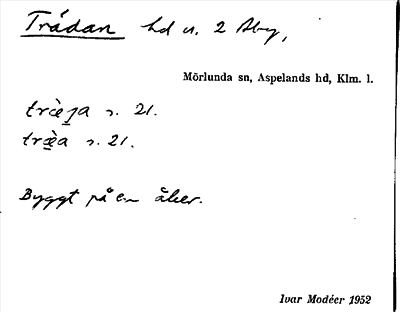 Trädan hd u. 2 Åby,
Mörlunda sn, Aspelands hd, Klm. l.
træ̀ʒa s. 21.
træ̀a s. 21.
Byggt på en åker.
Ivar Modéer 1952